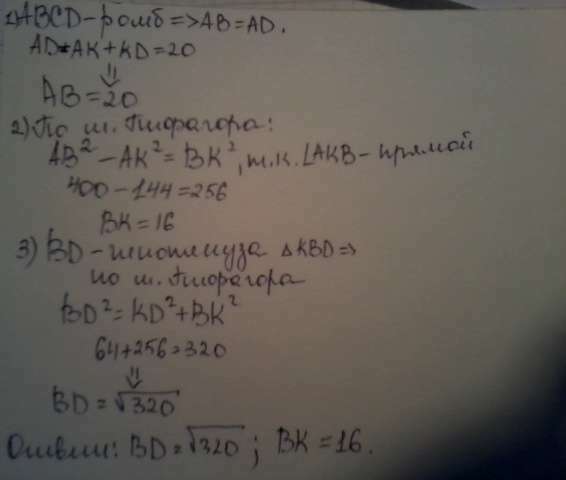 1) ABCD - ромб => AB = AD.
AD = AK + KD = 20
⇓
AB = 20
2) По т. Пифагора:
AB² - AK² = BK², т.к. ∠AKB - прямой
400 - 144 = 256
BK = 16
3) BD - гипотенуза △KBD =>
по т. Пифагора
BD² = KD² + BK²
64 + 256 = 320
⇓
BD = √320
Ответ: BD = √320 ; BK = 16.